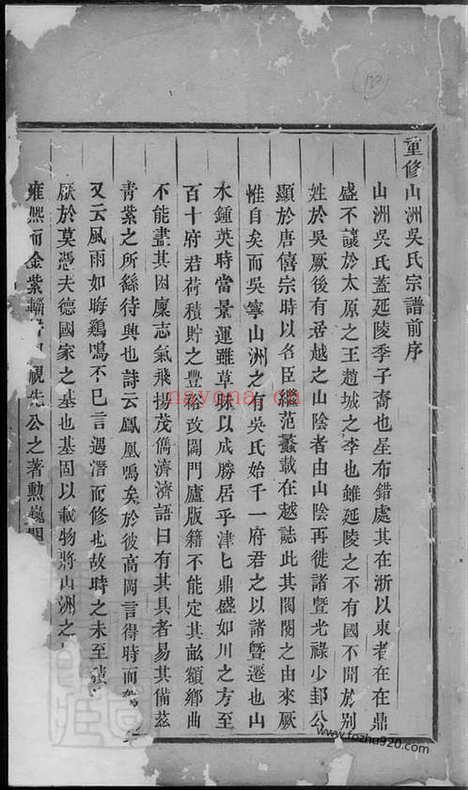 重修山洲吳氏宗譜前序
山洲吳氏蓋延陵季子裔也星布錯處其在浙以東者在在鼎
盛不讓於太原之王趙城之李也雖延陵之不有國不聞於別
姓於吳厥後有居越之山陰者由山陰再徙諸暨光祿少卿公
顯於唐僖宗時以名臣繼范蠡載在越誌此其閥閱之由來厥
惟自矣而吳寧山洲之有吳氏始千一府君之以諸暨遷也山
水鍾英時當景運雖草昧以成勝居乎津匕鼎盛如川之方至
百十府君荷積貯之豐裕改闢門廬版籍不能定其畝額鄉曲
不能盡其囷廩志氣飛揚茂儁濟濟語曰有其具者易其備茲
青紫之所繇待興也詩云鳳凰鳴矣於彼高岡言得時而
又云風雨如晦鷄鳴不已言遇潛而修也故時之未至
厥於莫憑夫德國家之基也基固以載物將山洲之
雍熙而金紫 視先公之著勲
nayona.cn
www.fozhu920.com